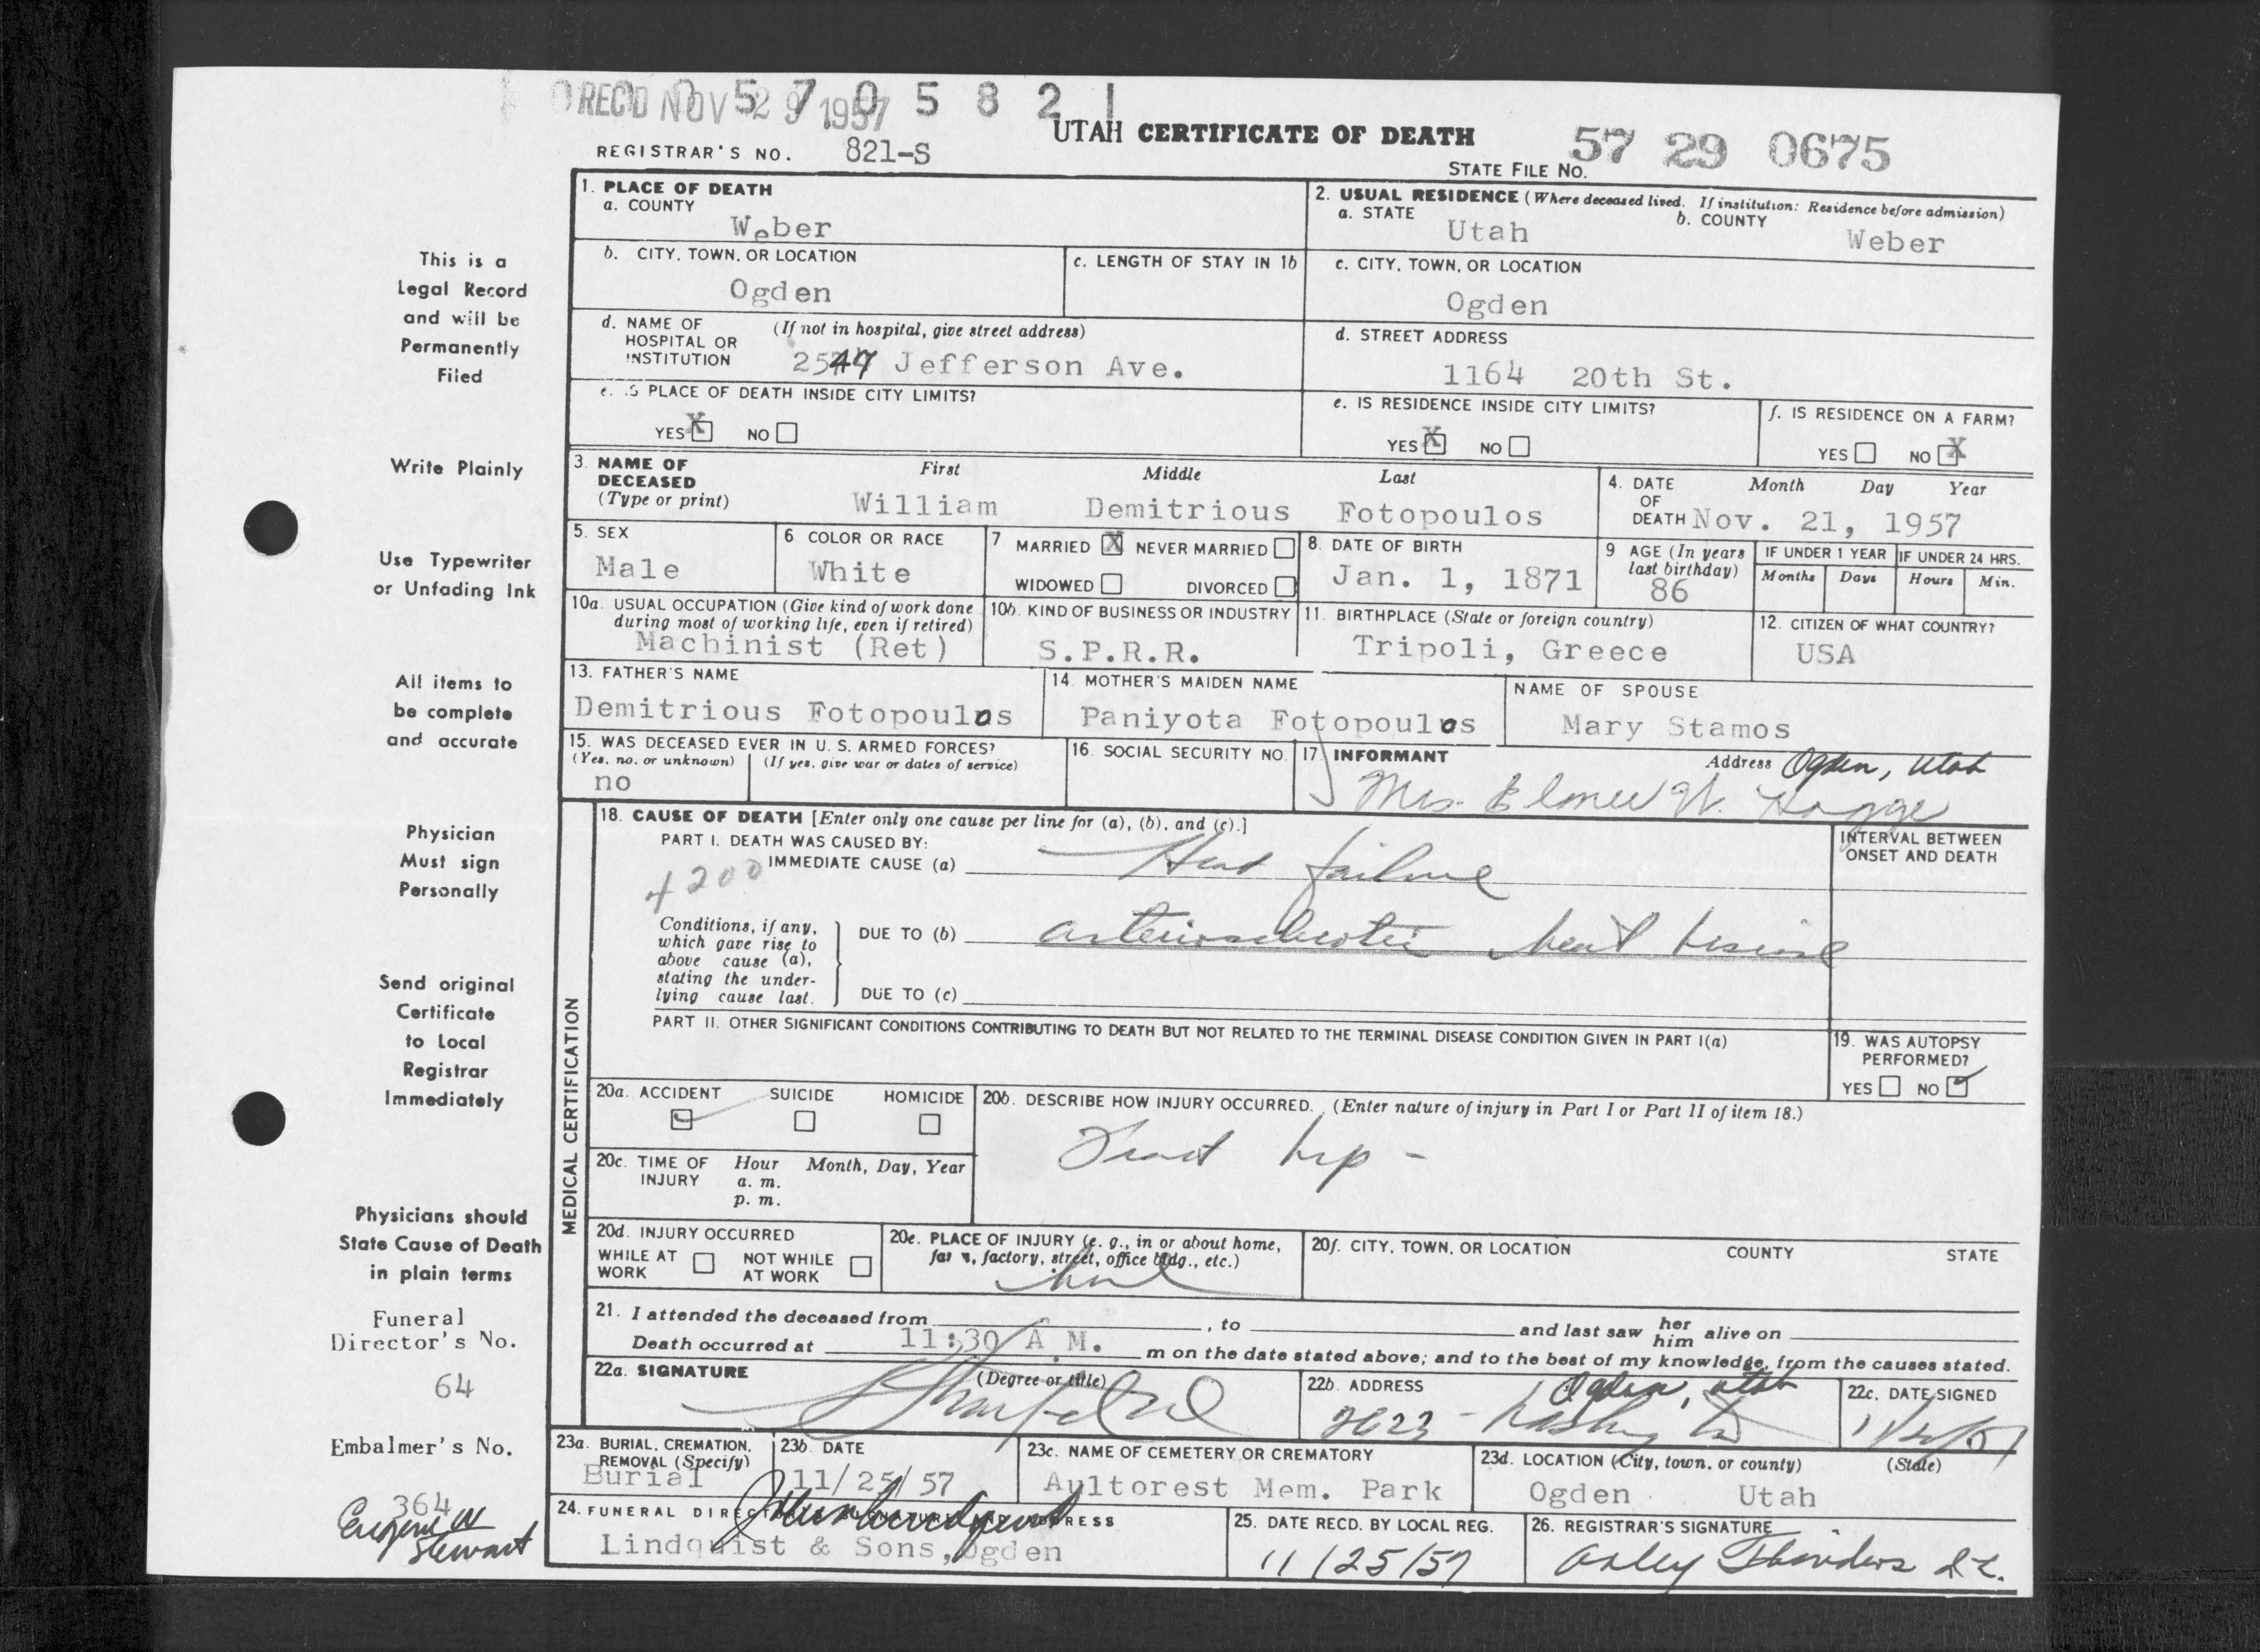 REC'D NOV 29 1957
0 5 7 0 5 8 2 1
UTAH CERTIFICATE OF DEATH
REGISTRAR'S NO. 821-S
STATE FILE NO. 57 29 0675
This is a
Legal Record
and will be
Permanently
Filed
Write Plainly
Use Typewriter
or Unfading Ink
All items to
be complete
and accurate
Physician
Must sign
Personally
Send original
Certificate
to Local
Registrar
Immediately
Physicians should
State Cause of Death
in plain terms
Funeral
Director's No.
64
Embalmer's No.
364
Eugene W
Stewart
1. PLACE OF DEATH
a. COUNTY
Weber
b. CITY, TOWN, OR LOCATION
Ogden
c. LENGTH OF STAY IN 1b
d. NAME OF HOSPITAL OR INSTITUTION
(If not in hospital, give street address)
2547 Jefferson Ave.
e. IS PLACE OF DEATH INSIDE CITY LIMITS?
YES X NO
2. USUAL RESIDENCE (Where deceased lived. If institution: Residence before admission)
a. STATE
Utah
b. COUNTY
Weber
c. CITY, TOWN, OR LOCATION
Ogden
d. STREET ADDRESS
1164 20th St.
e. IS RESIDENCE INSIDE CITY LIMITS?
YES X NO
f. IS RESIDENCE ON A FARM?
YES NO X
3. NAME OF DECEASED
(Type or print)
First Middle Last
William Demitrious Fotopoulos
4. DATE OF DEATH
Month Day Year
Nov. 21, 1957
5. SEX
Male
6 COLOR OR RACE
White
7 MARRIED X NEVER MARRIED
WIDOWED DIVORCED
8. DATE OF BIRTH
Jan. 1, 1871
9 AGE (In years last birthday)
86
IF UNDER 1 YEAR
Months Days
IF UNDER 24 HRS.
Hours Min.
10a. USUAL OCCUPATION (Give kind of work done
during most of working life, even if retired)
Machinist (Ret)
10b. KIND OF BUSINESS OR INDUSTRY
S.P.R.R.
11. BIRTHPLACE (State or foreign country)
Tripoli, Greece
12. CITIZEN OF WHAT COUNTRY?
USA
13. FATHER'S NAME
Demitrious Fotopoulos
14. MOTHER'S MAIDEN NAME
Paniyota Fotopoulos
NAME OF SPOUSE
Mary Stamos
15. WAS DECEASED EVER IN U. S. ARMED FORCES?
(Yes, no, or unknown) (If yes, give war or dates of service)
no
16. SOCIAL SECURITY NO.
17. INFORMANT
Address Ogden, Utah
Mrs. Elmer W. Hogge
MEDICAL CERTIFICATION
18. CAUSE OF DEATH [Enter only one cause per line for (a), (b), and (c).]
PART I. DEATH WAS CAUSED BY:
IMMEDIATE CAUSE (a) Heart failure
4200
Conditions, if any,
which gave rise to
above cause (a),
stating the under-
lying cause last.
DUE TO (b) arteriosclerotic heart disease
DUE TO (c)
INTERVAL BETWEEN
ONSET AND DEATH
PART II. OTHER SIGNIFICANT CONDITIONS CONTRIBUTING TO DEATH BUT NOT RELATED TO THE TERMINAL DISEASE CONDITION GIVEN IN PART I(a)
19. WAS AUTOPSY
PERFORMED?
YES NO
20a. ACCIDENT SUICIDE HOMICIDE
20b. DESCRIBE HOW INJURY OCCURRED. (Enter nature of injury in Part I or Part II of item 18.)
hip -
20c. TIME OF INJURY
Hour Month, Day, Year
a. m.
p. m.
20d. INJURY OCCURRED
WHILE AT WORK
NOT WHILE AT WORK
20e. PLACE OF INJURY (e. g., in or about home,
farm, factory, street, office bldg., etc.)
20f. CITY, TOWN, OR LOCATION COUNTY STATE
21. I attended the deceased from , to and last saw her him alive on
Death occurred at 11:30 A M. m on the date stated above; and to the best of my knowledge, from the causes stated.
22a. SIGNATURE
(Degree or title)
22b. ADDRESS
Ogden, Utah
22c. DATE SIGNED
23a. BURIAL, CREMATION,
REMOVAL (Specify)
Burial
23b. DATE
11/25/57
23c. NAME OF CEMETERY OR CREMATORY
Aultorest Mem. Park
23d. LOCATION (City, town, or county) (State)
Ogden Utah
24. FUNERAL DIRECTOR'S SIGNATURE AND ADDRESS
Lindquist & Sons, Ogden
25. DATE RECD. BY LOCAL REG.
11/25/57
26. REGISTRAR'S SIGNATURE